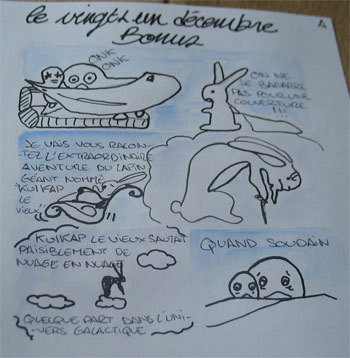 le vingts un décembre
Bonus
ONK
ONK
ON NE
SE BAGARRE
PAS POUR UNE
COUVERTURE
!!!
JE VAIS VOUS RACON-
TEZ L'EXTRAORDINAIRE
AVENTURE DU LAPIN
GÉANT NOMMÉ
KUIKAP
LE
VIEUX!!
KUIKAP LE VIEUX SAUTAIT
PAISIBLEMENT DE
NUAGE EN NUAGE
QUELQUE PART DANS L'UNI-
VERS GALACTIQUE
QUAND SOUDAIN